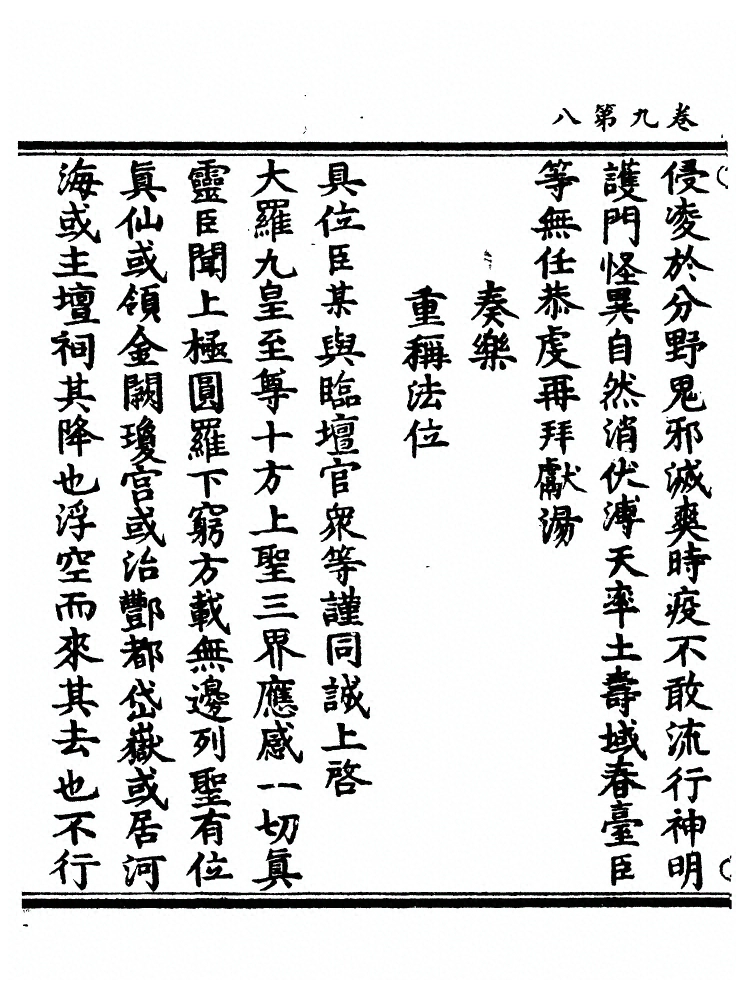 卷九第八
侵凌於分野鬼邪滅爽時疫不敢流行神明
護門怪異自然消伏溥天率土壽域春臺臣
等無任恭虔再拜獻湯
奏樂
重稱法位
具位臣某與臨壇官衆等謹同誠上啓
大羅九皇至尊十方上聖三界應感一切眞
靈臣聞上極圓羅下窮方載無邊列聖有位
眞仙或領金闕瓊宮或治酆都岱嶽或居河
海或主壇祠其降也浮空而來其去也不行